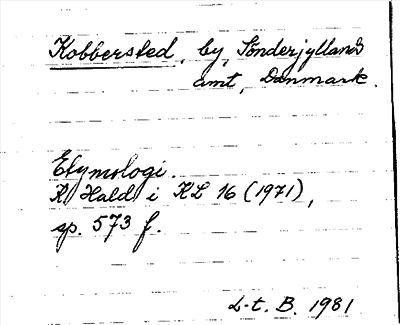 Kobbersted, by, Sønderjyllands
amt, Danmark.
Etymologi.
K. Hald i KL 16 (1971),
sp. 573 f.
L-t. B. 1981